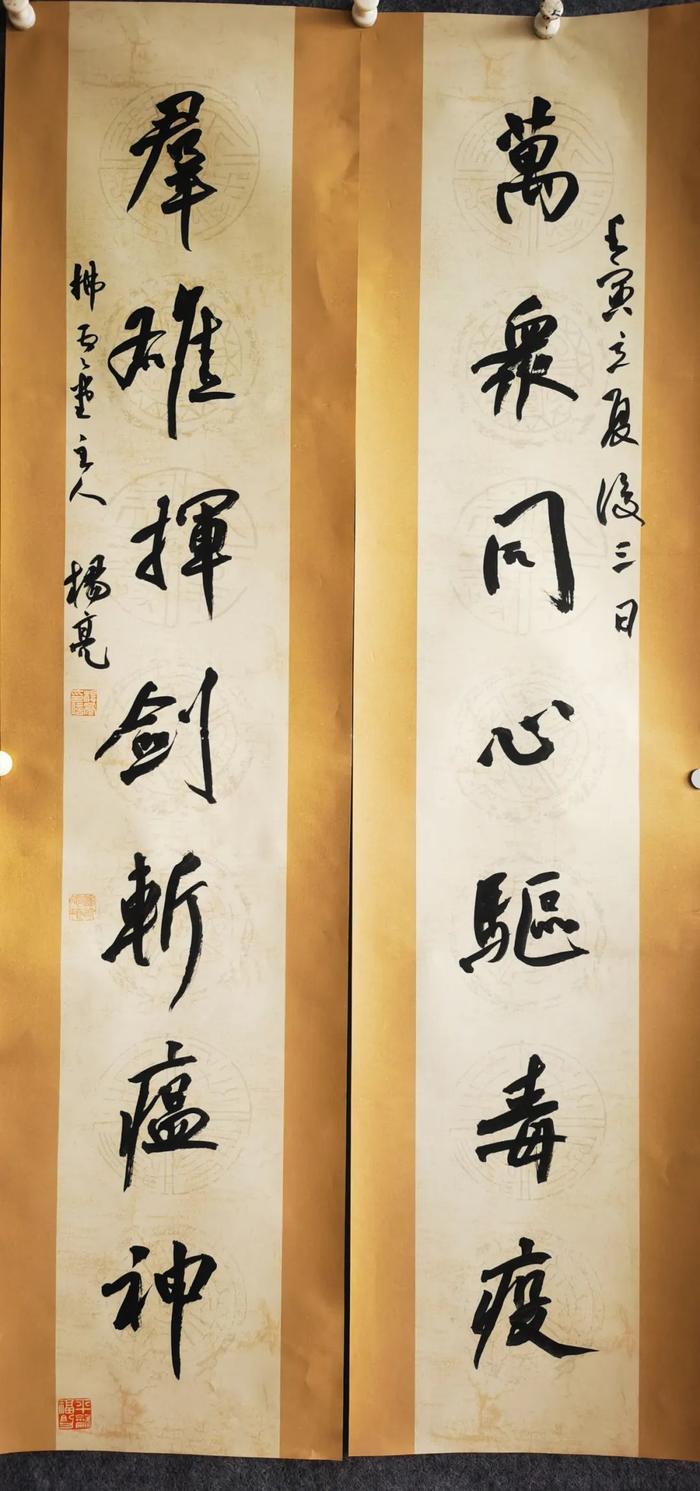 萬眾同心驅毒疫
壬寅立夏後三日
羣雄揮劍斬瘟神
主人
楊亮